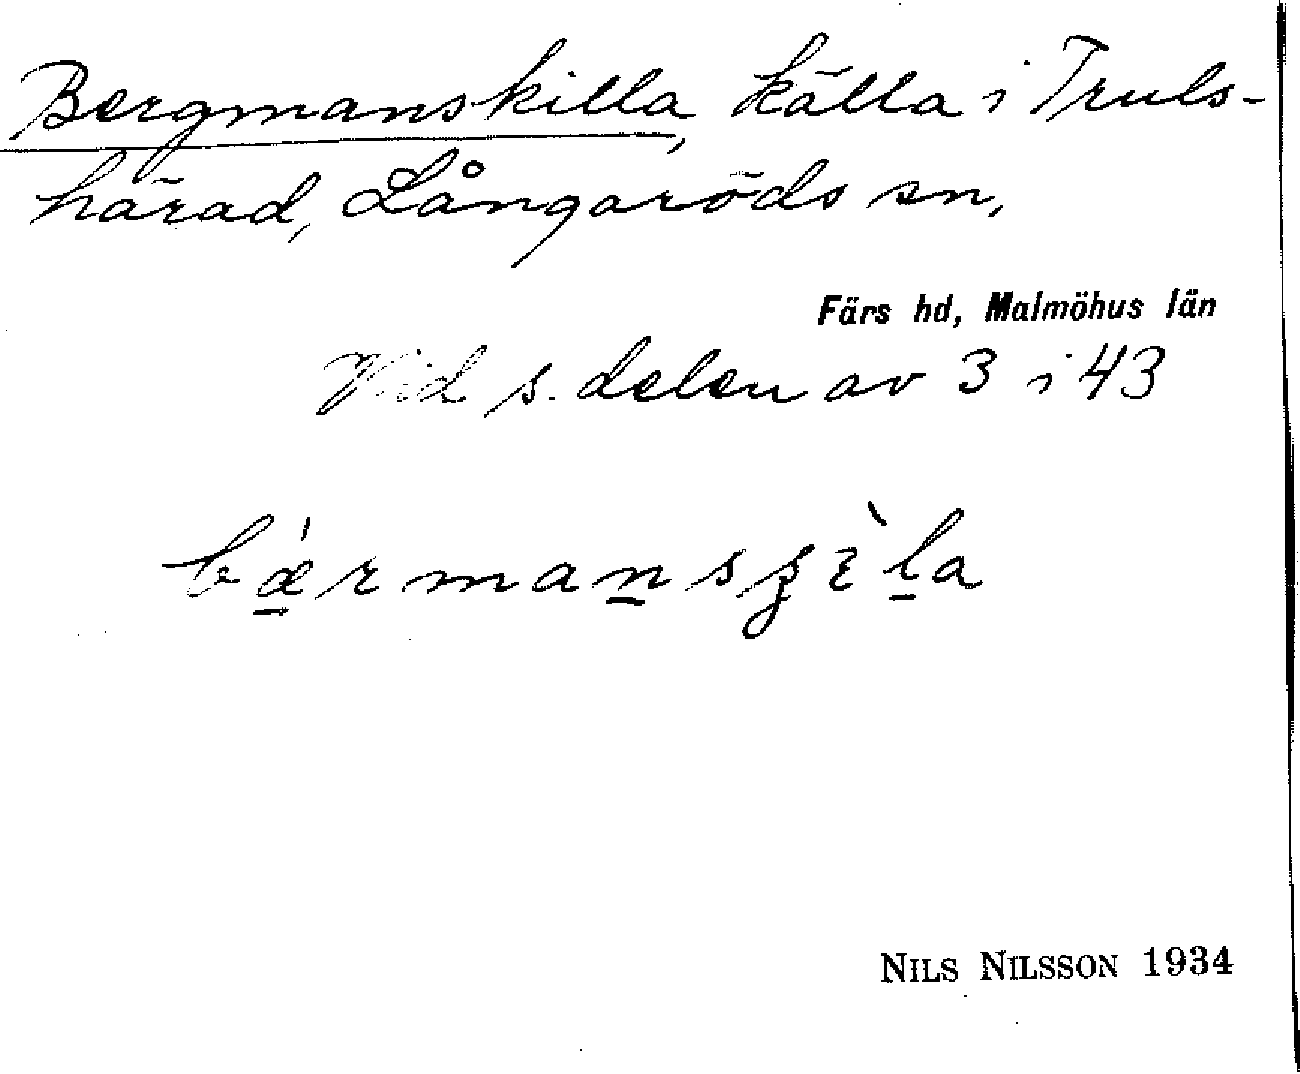 Bergmanskilla, källa i Truls-
härad, Långaröds sn,
Färs hd, Malmöhus län
Vid s. delen av 3 i 43
NILS NILSSON 1934